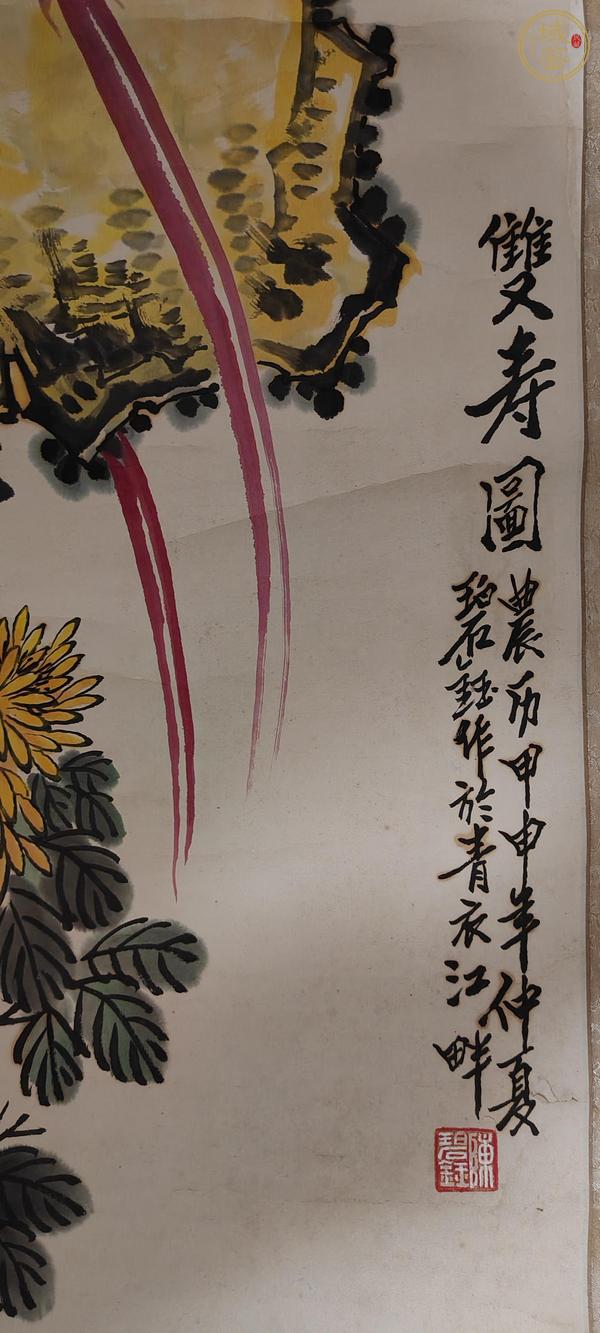 雙寿圖
農历甲申年仲夏
碧鈺作於青衣江畔
陳碧鈺